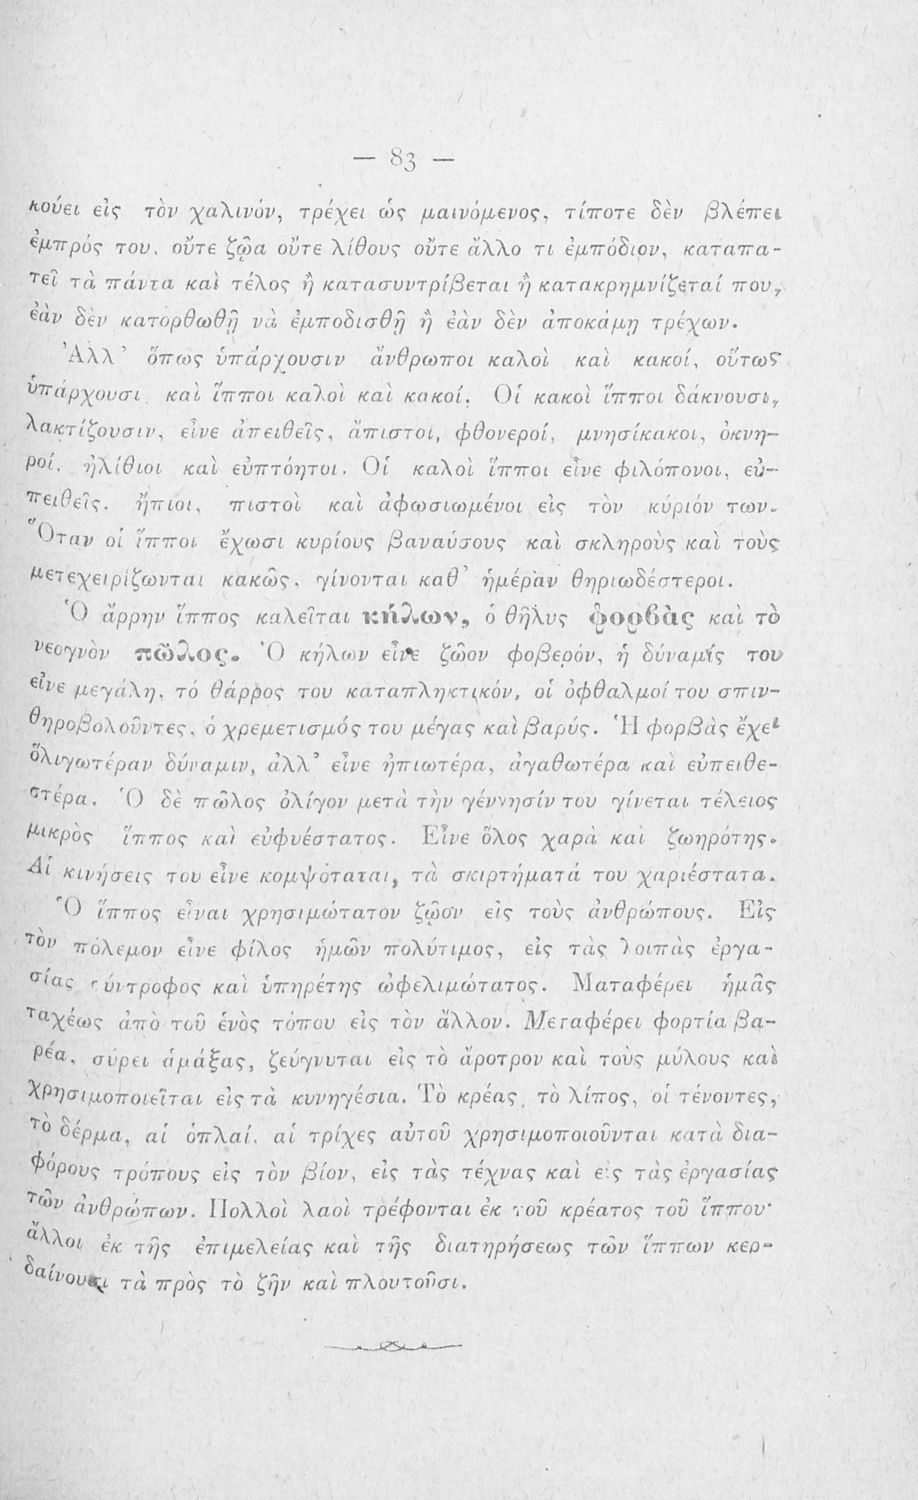 — 83 —
κούει εἰς τὸν χαλινόν, τρέχει ὡς μαινόμενος, τίποτε δὲν βλέπει
ἐμπρός του, οὔτε ζῷα οὔτε λίθους οὔτε ἄλλο τι ἐμπόδιον, καταπα-
τεῖ τὰ πάντα καὶ τέλος ἢ κατασυντρίβεται ἢ κατακρημνίζεταί που,
ἐὰν δὲν κατορθωθῇ νὰ ἐμποδισθῇ ἢ ἐὰν δὲν ἀποκάμῃ τρέχων.
Ἀλλ’ ὅπως ὑπάρχουσιν ἄνθρωποι καλοὶ καὶ κακοί, οὕτως
ὑπάρχουσι καὶ ἵπποι καλοὶ καὶ κακοί. Οἱ κακοὶ ἵπποι δάκνουσι,
λακτίζουσιν, εἶνε ἀπειθεῖς, ἄπιστοι, φθονεροί, μνησίκακοι, ὀκνη-
ροί, ἠλίθιοι καὶ εὐπτόητοι. Οἱ καλοὶ ἵπποι εἶνε φιλόπονοι, εὐ-
πειθεῖς, ἤπιοι, πιστοὶ καὶ ἀφωσιωμένοι εἰς τὸν κύριόν των.
Ὅταν οἱ ἵπποι ἔχωσι κυρίους βαναύσους καὶ σκληροὺς καὶ τοὺς
μετεχειρίζωνται κακῶς, γίνονται καθ’ ἡμέραν θηριωδέστεροι.
Ὁ ἄρρην ἵππος καλεῖται κήλων, ὁ θῆλυς φορβὰς καὶ τὸ
νεογνὸν πῶλος. Ὁ κήλων εἶνε ζῶον φοβερόν, ἡ δύναμίς του
εἶνε μεγάλη, τό θάρρος του καταπληκτικόν, οἱ ὀφθαλμοί του σπιν-
θηροβολοῦντες, ὁ χρεμετισμός του μέγας καὶ βαρύς. Ἡ φορβὰς ἔχει
ὀλιγωτέραν δύναμιν, ἀλλ’ εἶνε ἠπιωτέρα, ἀγαθωτέρα καὶ εὐπειθε-
στέρα. Ὁ δὲ πῶλος ὀλίγον μετὰ τὴν γέννησίν του γίνεται τέλειος
μικρὸς ἵππος καὶ εὐφυέστατος. Εἶνε ὅλος χαρὰ καὶ ζωηρότης.
Αἱ κινήσεις του εἶνε κομψόταται, τὰ σκιρτήματά του χαριέστατα.
Ὁ ἵππος εἶναι χρησιμώτατον ζῷον εἰς τοὺς ἀνθρώπους. Εἰς
τὸν πόλεμον εἶνε φίλος ἡμῶν πολύτιμος, εἰς τὰς λοιπὰς ἐργα-
σίας σύντροφος καὶ ὑπηρέτης ὠφελιμώτατος. Ματαφέρει ἡμᾶς
ταχέως ἀπὸ τοῦ ἑνὸς τόπου εἰς τὸν ἄλλον. Μεταφέρει φορτία βα-
ρέα, σύρει ἁμάξας, ζεύγνυται εἰς τὸ ἄροτρον καὶ τοὺς μύλους καὶ
χρησιμοποιεῖται εἰς τὰ κυνηγέσια. Τὸ κρέας, τὸ λίπος, οἱ τένοντες,
τὸ δέρμα, αἱ ὁπλαί, αἱ τρίχες αὐτοῦ χρησιμοποιοῦνται κατὰ δια-
φόρους τρόπους εἰς τὸν βίον, εἰς τὰς τέχνας καὶ εἰς τὰς ἐργασίας
τῶν ἀνθρώπων. Πολλοὶ λαοὶ τρέφονται ἐκ τοῦ κρέατος τοῦ ἵππου·
ἄλλοι ἐκ τῆς ἐπιμελείας καὶ τῆς διατηρήσεως τῶν ἵππων κερ-
δαίνουσι τὰ πρὸς τὸ ζῆν καὶ πλουτοῦσι.